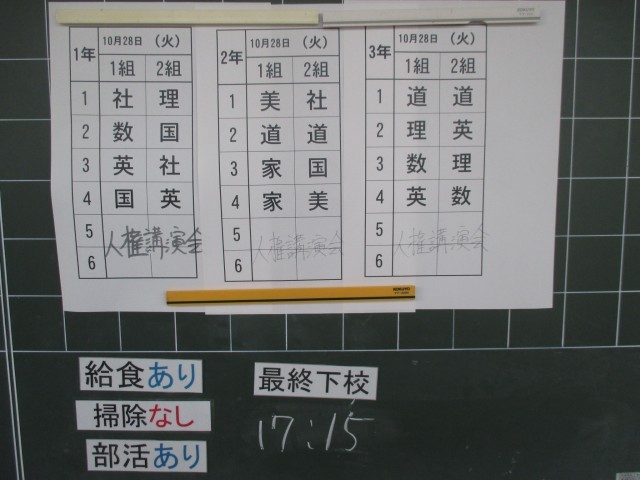 1年 10月28日 (火)
1組 2組
1 社 理
2 数 国
3 英 社
4 国 英
5
人権講演会
6
2年 10月28日 (火)
1組 2組
1 美 社
2 道 道
3 家 国
4 家 美
5
人権講演会
6
3年 10月28日 (火)
1組 2組
1 道 道
2 理 英
3 数 理
4 英 数
5
人権講演会
6
給食あり
掃除なし
部活あり
最終下校
17:15